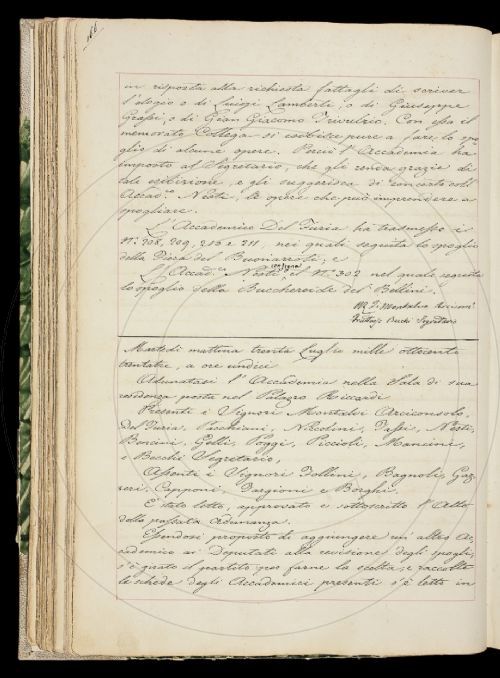 166
in risposta alla richiesta fattagli di scriver
l'elogio o di Luigi Lamberti, o di Giuseppe
Grassi, o di Gian Giacomo Trivulzio. Con essa il
memorato Collega si esibisce pure a fare lo spo-
glio di alcune opere. Perciò l'Accademia ha
imposto al Segretario, che gli renda grazie di
tale esibizione, e gli suggerisca di concerto coll'
Accad.co Nesti, le opere che può imprendere a
spogliare.
L'Accademico Del Furia ha trasmesso i
N.i 208, 209, 210 e 211, nei quali seguita lo spoglio
della Fiera del Buonarroti; e
L'Accad.co Nesti consegna il N.o 302 nel quale seguita
lo spoglio della Buccheroide del Bellini.
Montalvo Arcicons.
Fruttuoso Becchi Segretario
Martedì mattina trenta Luglio mille ottocento
trentatre, a ore undici
Adunatasi l'Accademia nella Sala di sua
residenza posta nel Palazzo Riccardi
Presenti i Signori Montalvi Arciconsolo,
Del Furia, Zannoni, Niccolini, Tassi, Nesti,
Bencini, Gelli, Poggi, Piccioli, Mancini,
e Becchi Segretario,
Assenti i Signori Follini, Bagnoli, Gaz-
zeri, Capponi, Targioni e Borghi.
È stato letto, approvato e sottoscritto l'Atto
della passata Adunanza.
Essendosi proposto di aggiungere un altro Ac-
cademico ai Deputati alla revisione degli spogli,
s'è girato il partito per farne la scelta; e raccolte
le schede degli Accademici presenti s'è letto in